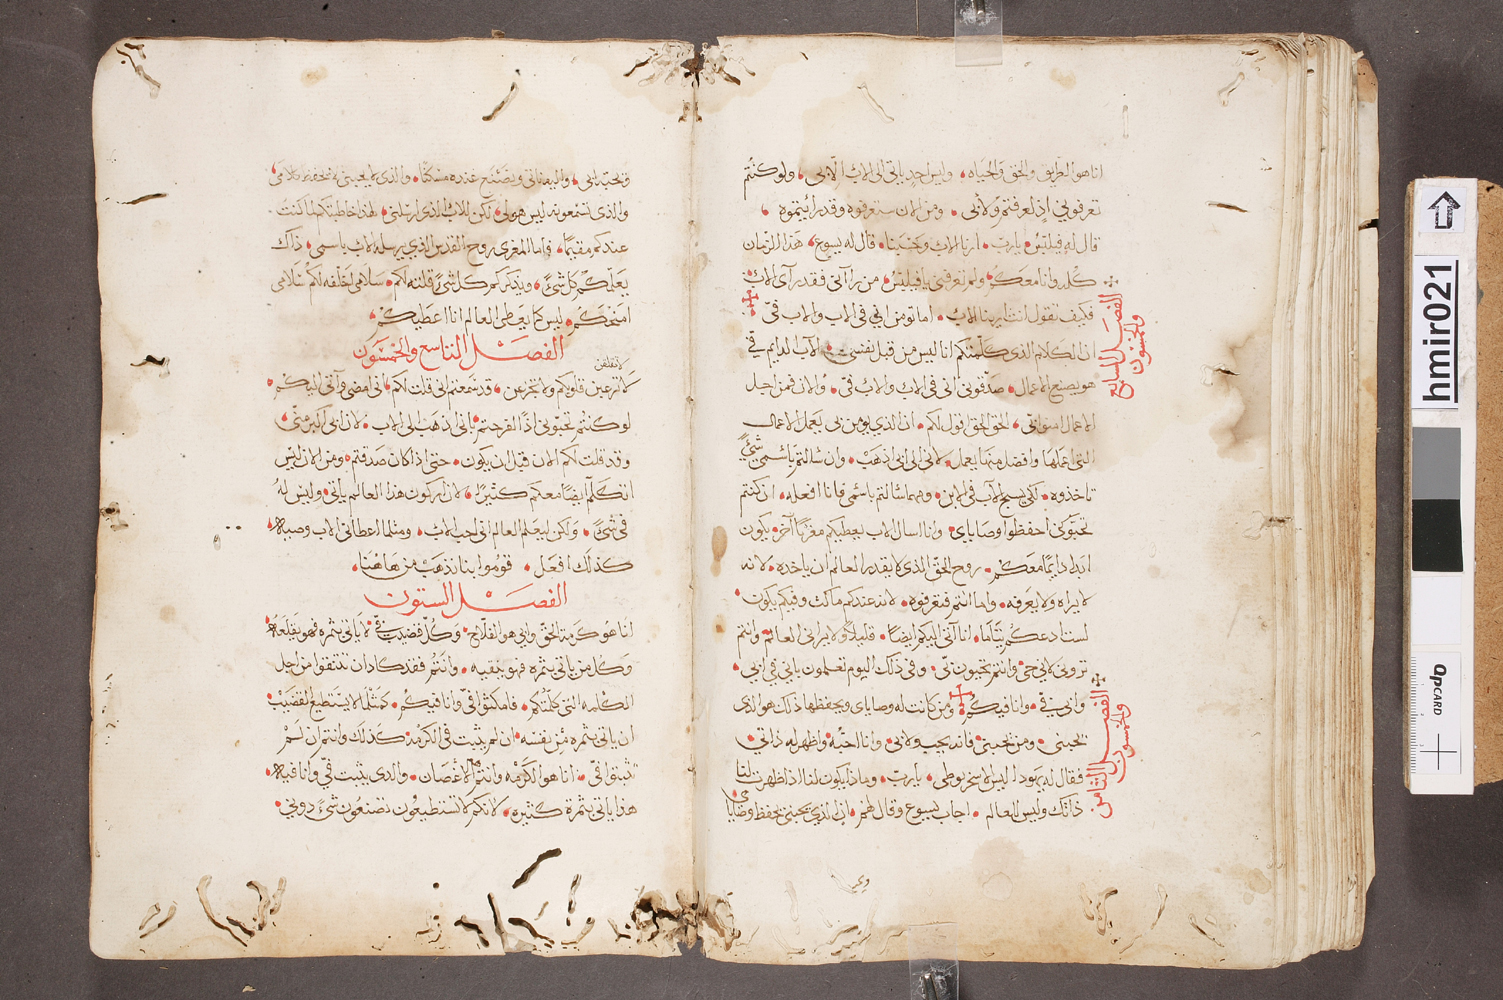 انا هو الطريق والحق والحياه وليس احد ياتي الى الاب الّا بي ولو كنتم
تعرفوني اذًا لعرفتم ولابي ومن الان ستعرفوه وقد رايتموه
قال له فيلبس يارب ارنا الاب وحسبنا قال له يسوع هذا الزمان
كله وانا معكم ولم تعرفني يا فيلبس من رآني فقد رآى الاب
فكيف تقول انت ارينا الاب اما تومن اني في الاب والاب فيّ
ان الكلام الذي كلمتكم انا ليس من قبل نفسي الآب الدايم فيّ
هو يصنع الاعمال صدّقوني اني في الاب والاب فيّ والان فمن اجل
الاعمال امنوا بي الحق الحق اقول لكم ان الذي يومن بي يعمل الاعمال
التي اعملها وافضل منها يعمل لاني الى ابي اذهب وان سالتم باسمي شيءً
تاخذوه لكي يسبح الآب في الابن ومهما سالتم باسمي فانا افعله ان كنتم
تحبّوني احفظوا وصاياي وانا اسال الاب يعطيكم معزيًا آخر يكون
ابدا دايمًا معكم روح الحق الذي لا يقدر العالم ان ياخذه لانه
لا يراه ولا يعرفه واما انتم فتعرفوه لانه عندكم ماكث وفيكم يكون
لست ادعكم يتاما انا آتي اليكم ايضًا قليلًا ولا يراني العالم وانتم
تروني لاني حي وانتم تحيون بي وفي ذلك اليوم تعلمون باني في ابي
واني فيّ وانا فيكم ومن كانت له وصاياي ويحفظها ذلك هو الذي
يحبني ومن يحبني فانه يحب لابي وانا احبّه واظهر له ذاتي
فقال له يهودا ليس الاسخريوطي يارب وماذا يكون لنا اذ اظهرت لنا
ذاتك وليس للعالم اجاب يسوع وقال لهم ان الذي يحبني يحفظ وصاياي
الفصل السابع
والخمسون
الفصل الثامن
والخمسون
وابي يحبه واليه ناتي ونصنع عنده مسكنًا والذي لا يحبني لا يحفظ كلامي
والذي تسمعونه ليس هو لي لكن للاب الذي ارسلني هذا خاطبتكم لما كنت
عندكم مقيمًا فاما المعزي روح القدس الذي يرسله الاب باسمي ذاك
يعلّمكم كل شيءً ويذكركم كل شيءً قلته لكم سلامي اخلفه لكم سلامي
امنحكم ليس كما يعطى العالم انا اعطيكم
الفصل التاسع والخمسون
لا تقلقن
لا تزعين قلوبكم ولا تجزعن قد سمعتم اني قلت لكم اني امضي وآتي اليكم
لو كنتم تحبّوني اذًا لفرحتم باني اذهب الى الاب لان ابي اكبر منّي
وقد قلت لكم الان قبل ان يكون حتى اذا كان صدقتم ومن الان ليس
اتكلم ايضًا معكم كثيرًا لان اركون هذا العالم ياتي وليس له
فيّ شيءً ولكن ليعلم العالم اني احب الاب ومثلما اعطاني الاب وصية
كذلك افعل قوموا بنا نذهب من هاهنا
الفصل الستون
انا هو كرمة الحق وابي هو الفلاح وكل قضيب فيّ لا ياتي بثمرة فهو يقلعه
وكل من ياتي بثمرة فهو ينقيه وانتم فقد كاد ان تنقوا من اجل
الكلمه التي كلمتكم فامكثوا فيّ وانا فيكم كمثلما لا يستطيع القضيب
ان ياتي بثمره من نفسه ان لم يثبت في الكرمه كذلك وانتم ان لم
تثبتوا فيّ انا هو الكرمه وانتم الاغصان والذي يثبت فيّ وانا فيه
هذا ياتي بثمرة كثيره لانكم لا تستطيعون تصنعون شيءً دوني
hmir021